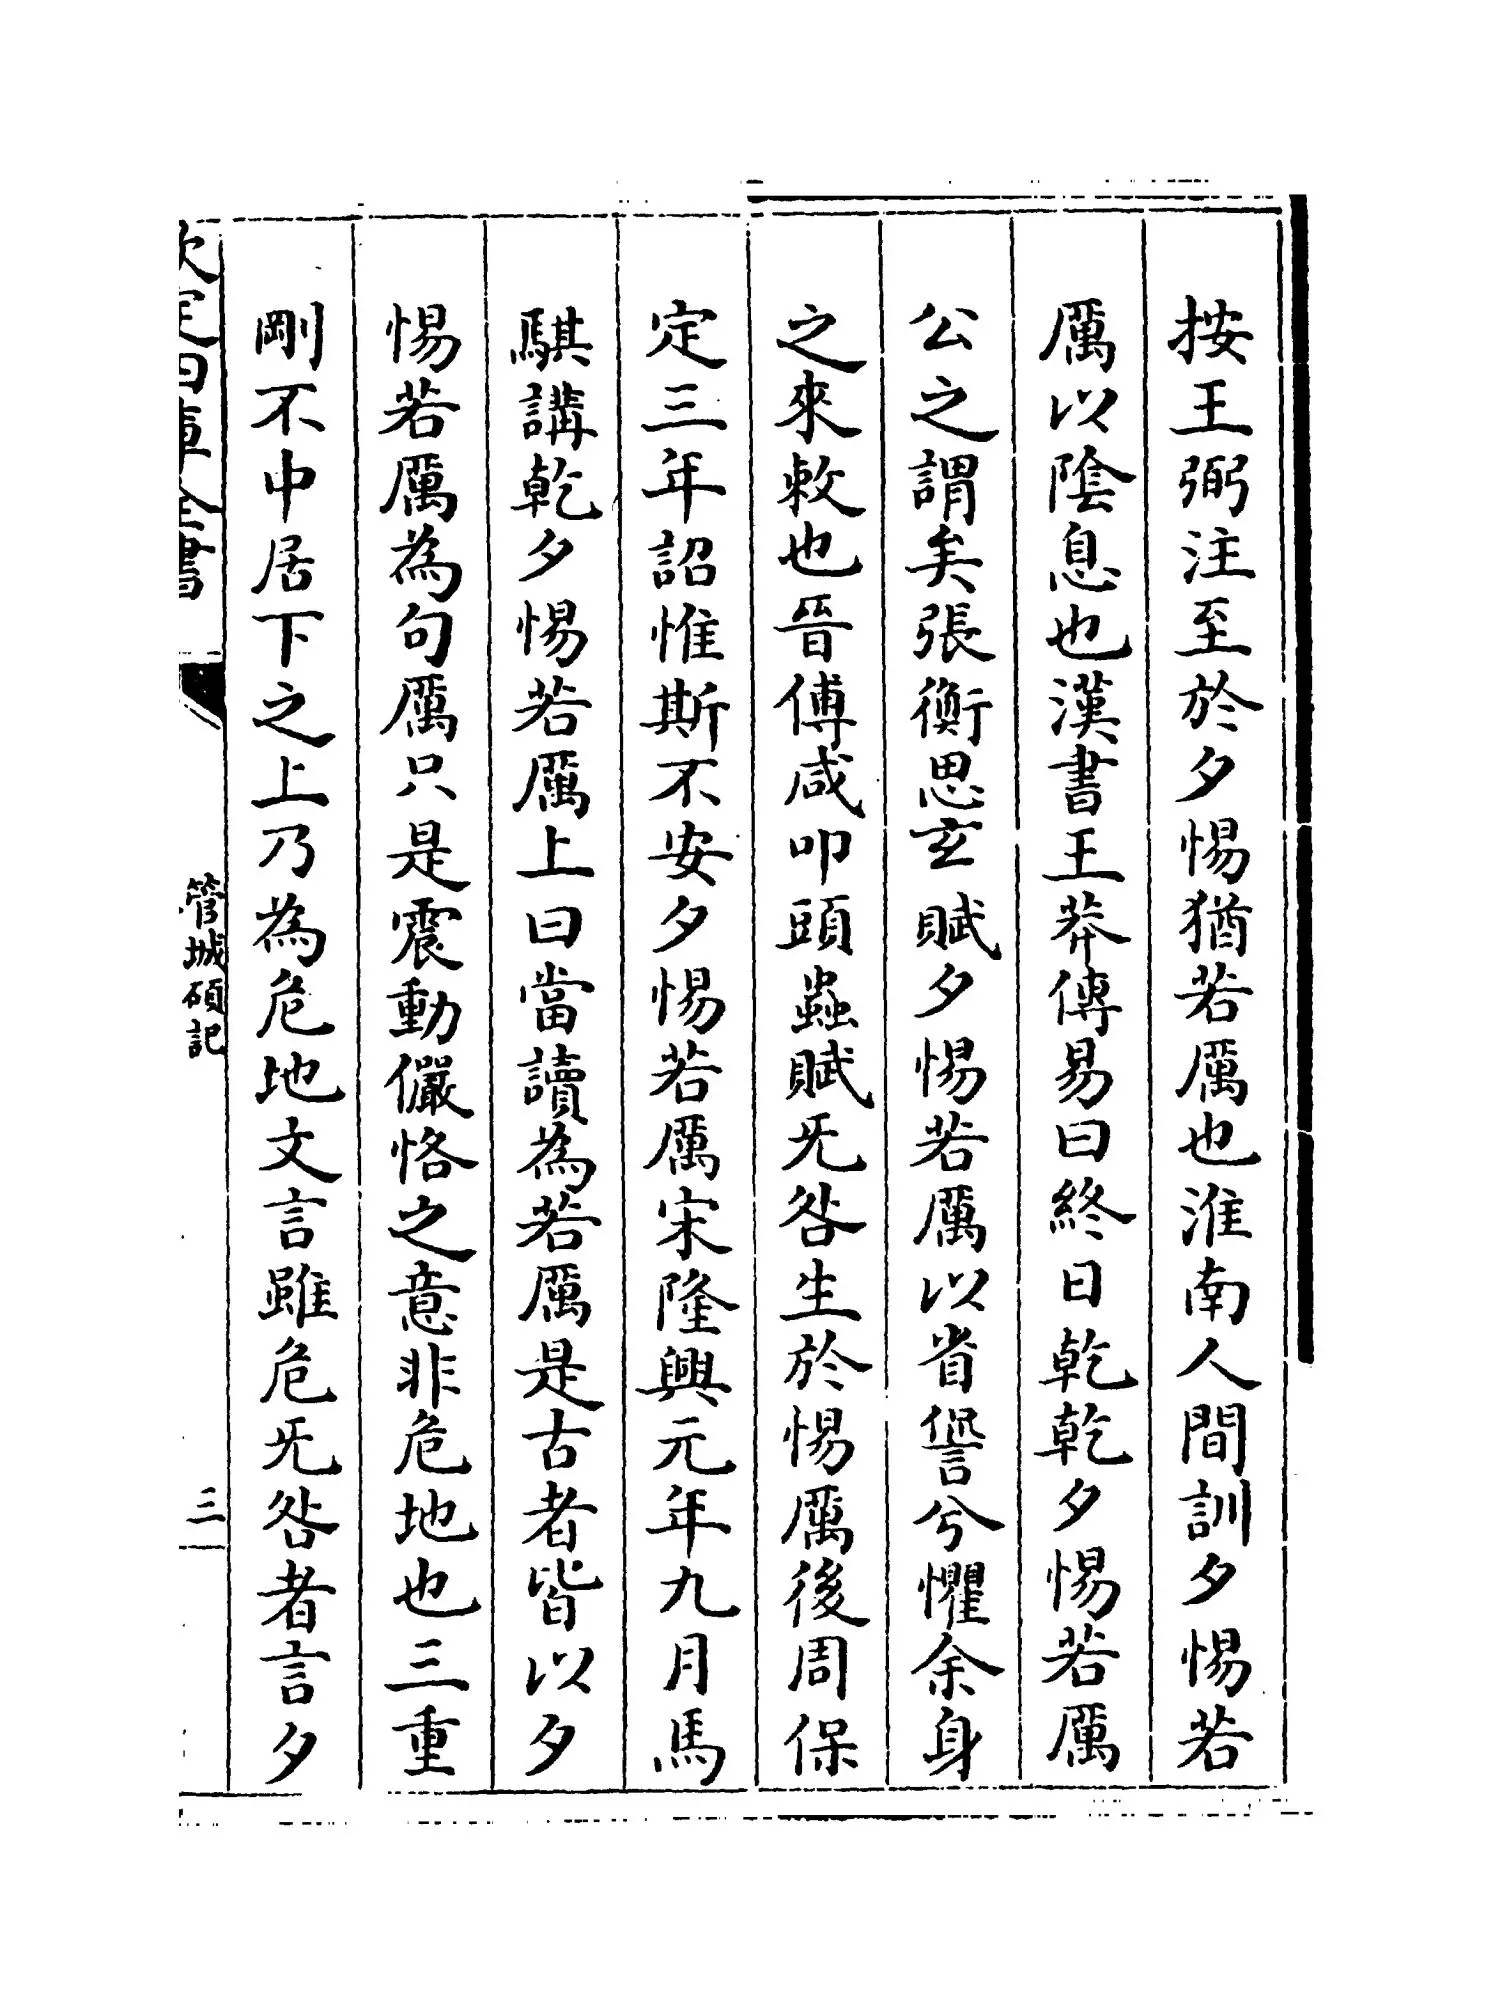 按王弼注至於夕惕猶若厲也淮南人間訓夕惕若
厲以隂息也漢書王莽傳易曰終日乾乾夕惕若厲
公之謂矣張衡思玄賦夕惕若厲以省諐兮懼余身
之來敕也晉傅咸叩頭蟲賦旡咎生於惕厲後周保
定三年詔惟斯不安夕惕若厲宋隆興元年九月馬
騏講乾夕惕若厲上曰當讀為若厲是古者皆以夕
惕若厲為句厲只是震動儼恪之意非危地也三重
剛不中居下之上乃為危地文言雖危旡咎者言夕
欽定四庫全書
管城碩記
三